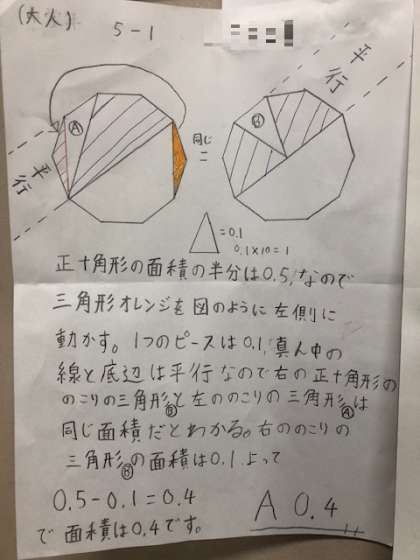 (大人)
5-1
平行
Ⓐ
平行
同じ
=
Ⓑ
=0.1
0.1×10=1
正十角形の面積の半分は0.5,なので
三角形オレンジを図のように左側に
動かす。1つのピースは0.1,真ん中の
線と底辺は平行なので右の正十角形の
のこりの三角形Ⓑと左ののこりの三角形Ⓐは
同じ面積だとわかる。右ののこりの
三角形Ⓑの面積は0.1よって
0.5-0.1=0.4
で面積は0.4です。
A 0.4